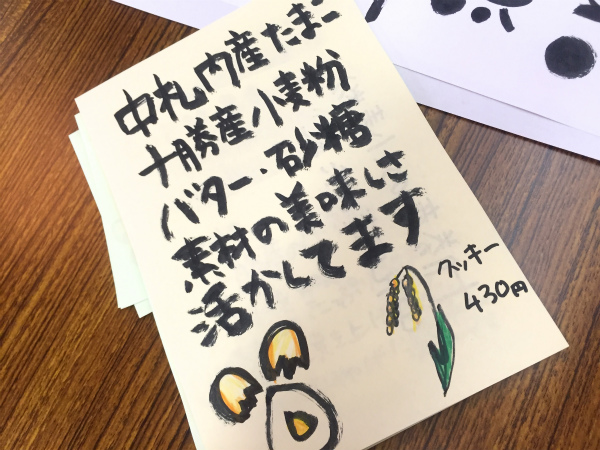 中札内産たまご
十勝産小麦粉
バター・砂糖
素材の美味しさ
活かしてます
クッキー
430円